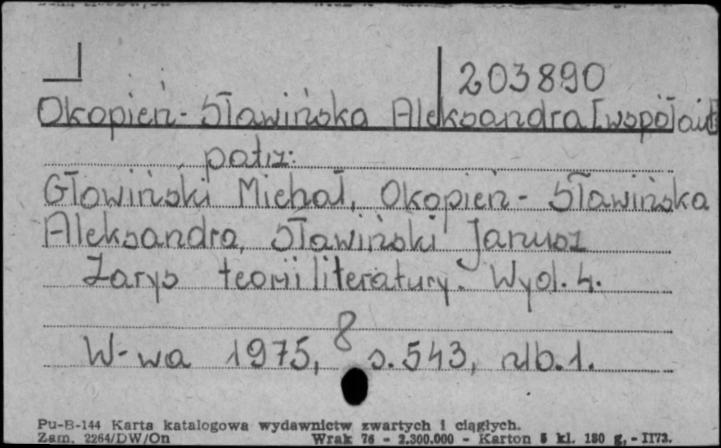 203890
Okopień-Sławińska Aleksandra [współaut
patrz:
Głowiński Michał, Okopień-Sławińska
Aleksandra, Sławiński Janusz
Zarys teorii literatury. Wyd. 4.
W-wa 1975, 8 s. 543, nlb. 1.
Pu-B-144 Karta katalogowa wydawnictw zwartych i ciągłych.
Zam. 2264/DW/On Wrak 76 - 2.300.000 - Karton 5 kl. 180 g. - II73.